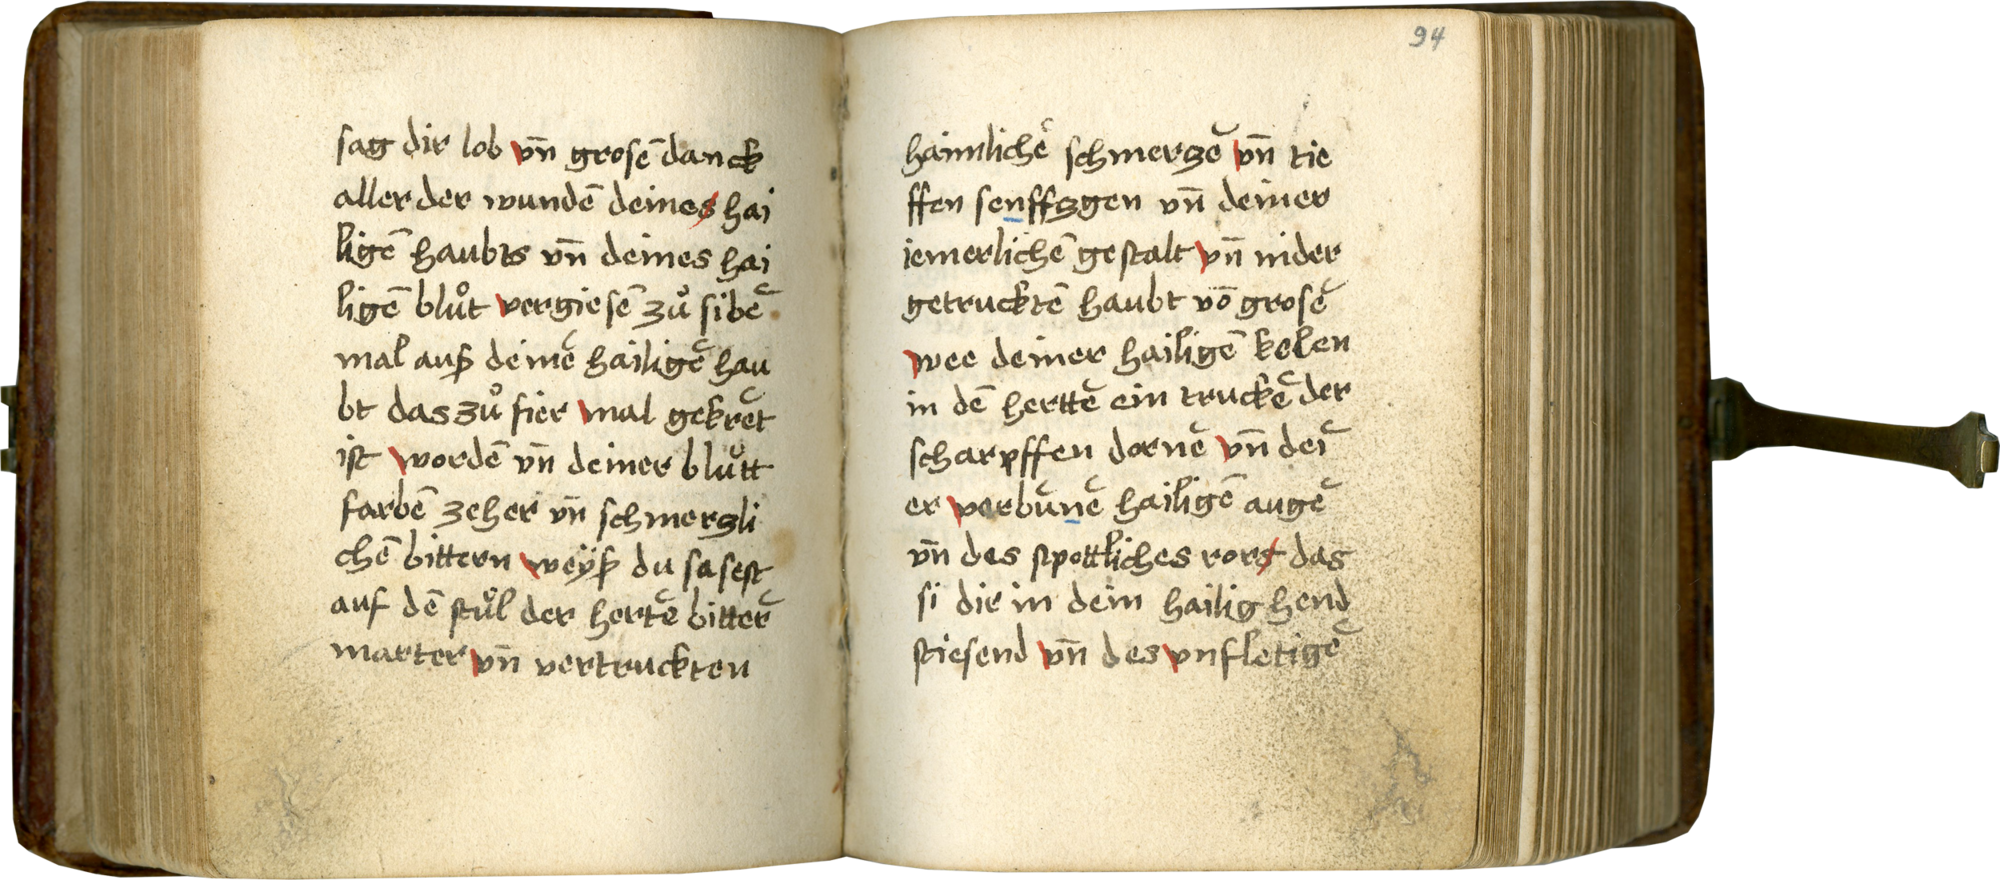 sag dir lob vn̄ grosē danck
aller der wundē deines hai
ligē haubts vn̄ deines hai
ligē blůt vergiesē zů sibē
mal auß deinē hailigē hau
bt das zů fier mal gekrēt
ist wordē vn̄ deiner blůtt
farbē zeher vn̄ schmerzli
chē bittern weÿß du sasest
auf dē stůl der hertē bitterē
marter vn̄ vertruckten
94
haimlichē schmerzē vn̄ tie
ffen senffzgen vn̄ deiner
iemerlichē gestalt vn̄ nider
getrucktē haubt vō grosē
wee deiner hailigē kelen
in dē herttē ein truckē der
scharpffen dornē vn̄ dei
er verbūnē hailigē augē
vn̄ des spottliches rors das
si dir in dein hailig hend
stiesend vn̄ des vnfletigē